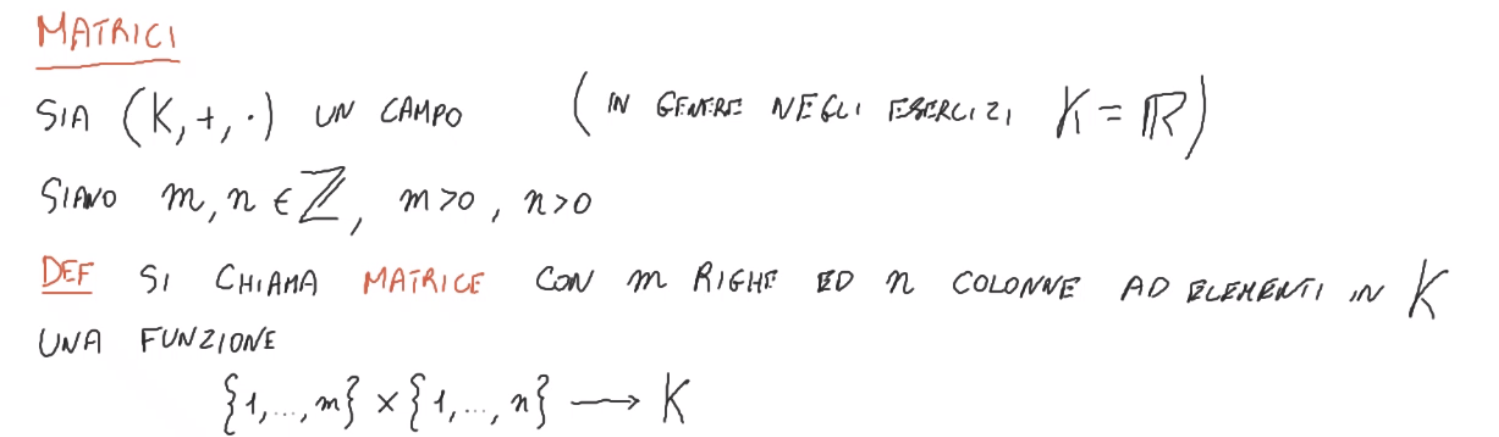 MATRICI
SIA (K,+,·) UN CAMPO (IN GENERE NEGLI ESERCIZI K=ℝ)
SIANO m,n ∈ ℤ, m>0, n>0
DEF SI CHIAMA MATRICE CON m RIGHE ED n COLONNE AD ELEMENTI IN K
UNA FUNZIONE
{1,...,m} × {1,...,n} ⟶ K